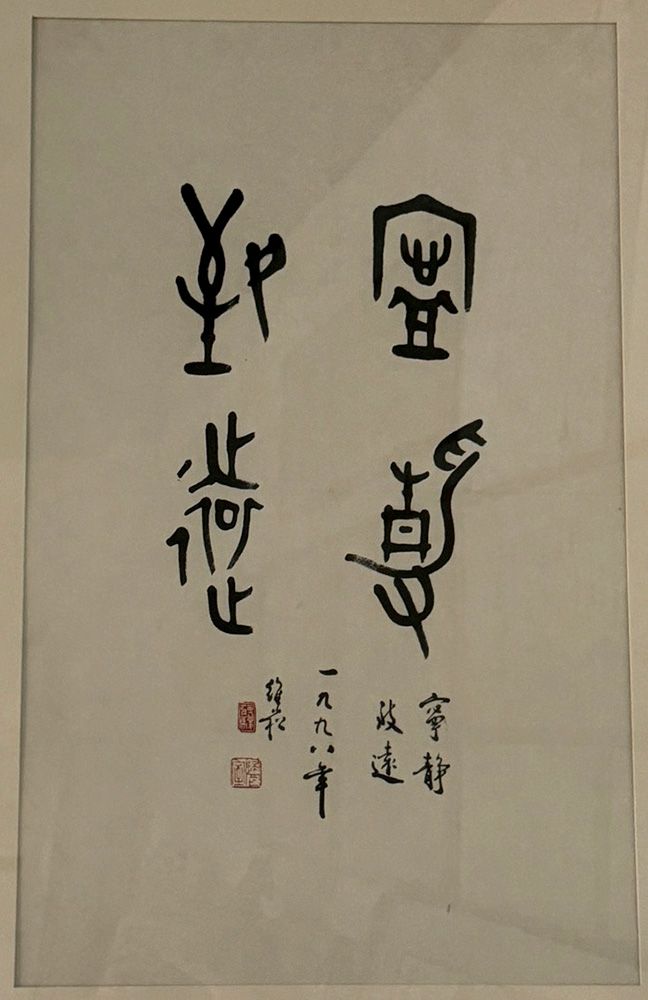 寧靜
致遠
寧静
致遠
一九九八年